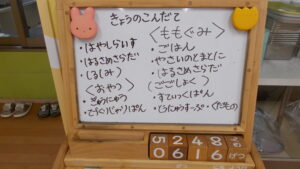 きょうのこんだて
・はやしらいす
・はるさめさらだ
・しるしみ)
〈おやつ〉
・ぎゅうにゅう
〈ももぐみ〉
・ごはん
・やさいのとまとに
・はるさめさらだ
〈ごごしょく〉
・すてぃっくぱん
・とうにゅうすーぷ ・くだもの
5 2 4 8
0 6 1 6